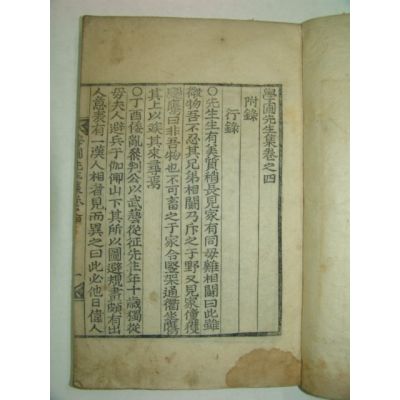 學圃先生集卷之四
附錄
行錄
〇先生生有美質稍長見家有同母雞相鬪曰此雖
微物吾不忍其兄弟相鬪乃斥之于野又見家僮獲
鷹曰非吾物也不可畜之于家令竪架通衢坐鷹
其上以竢其來尋焉
〇丁酉倭亂參判公以武藝從征先生年十歲獨從
母夫人避兵于伽倻山下其所以圖避規畫頗有出
人意表有一漢人相者見而異之曰此必他日偉人
學圃先生集卷之四 一